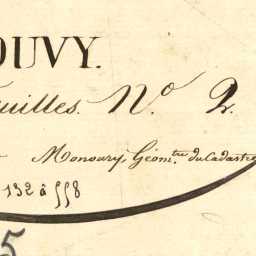 OUVY.
uilles. N.º 2.
Monoury, Géom.tre du Cadastre
132 à 558
5